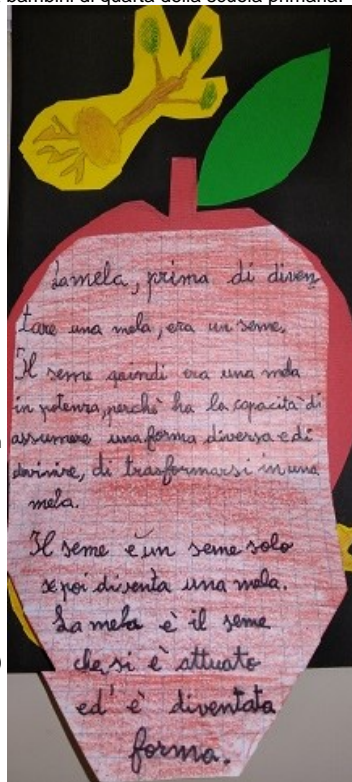 bambini di quarta della scuola primaria.
La mela, prima di diven
tare una mela, era un seme.
Il seme quindi era una mela
in potenza, perchè ha la capacità di
assumere una forma diversa e di
divinire, di trasformarsi in una
mela.
Il seme è un seme solo
se poi diventa una mela.
La mela è il seme
che si è attuato
ed' è diventata
forma.